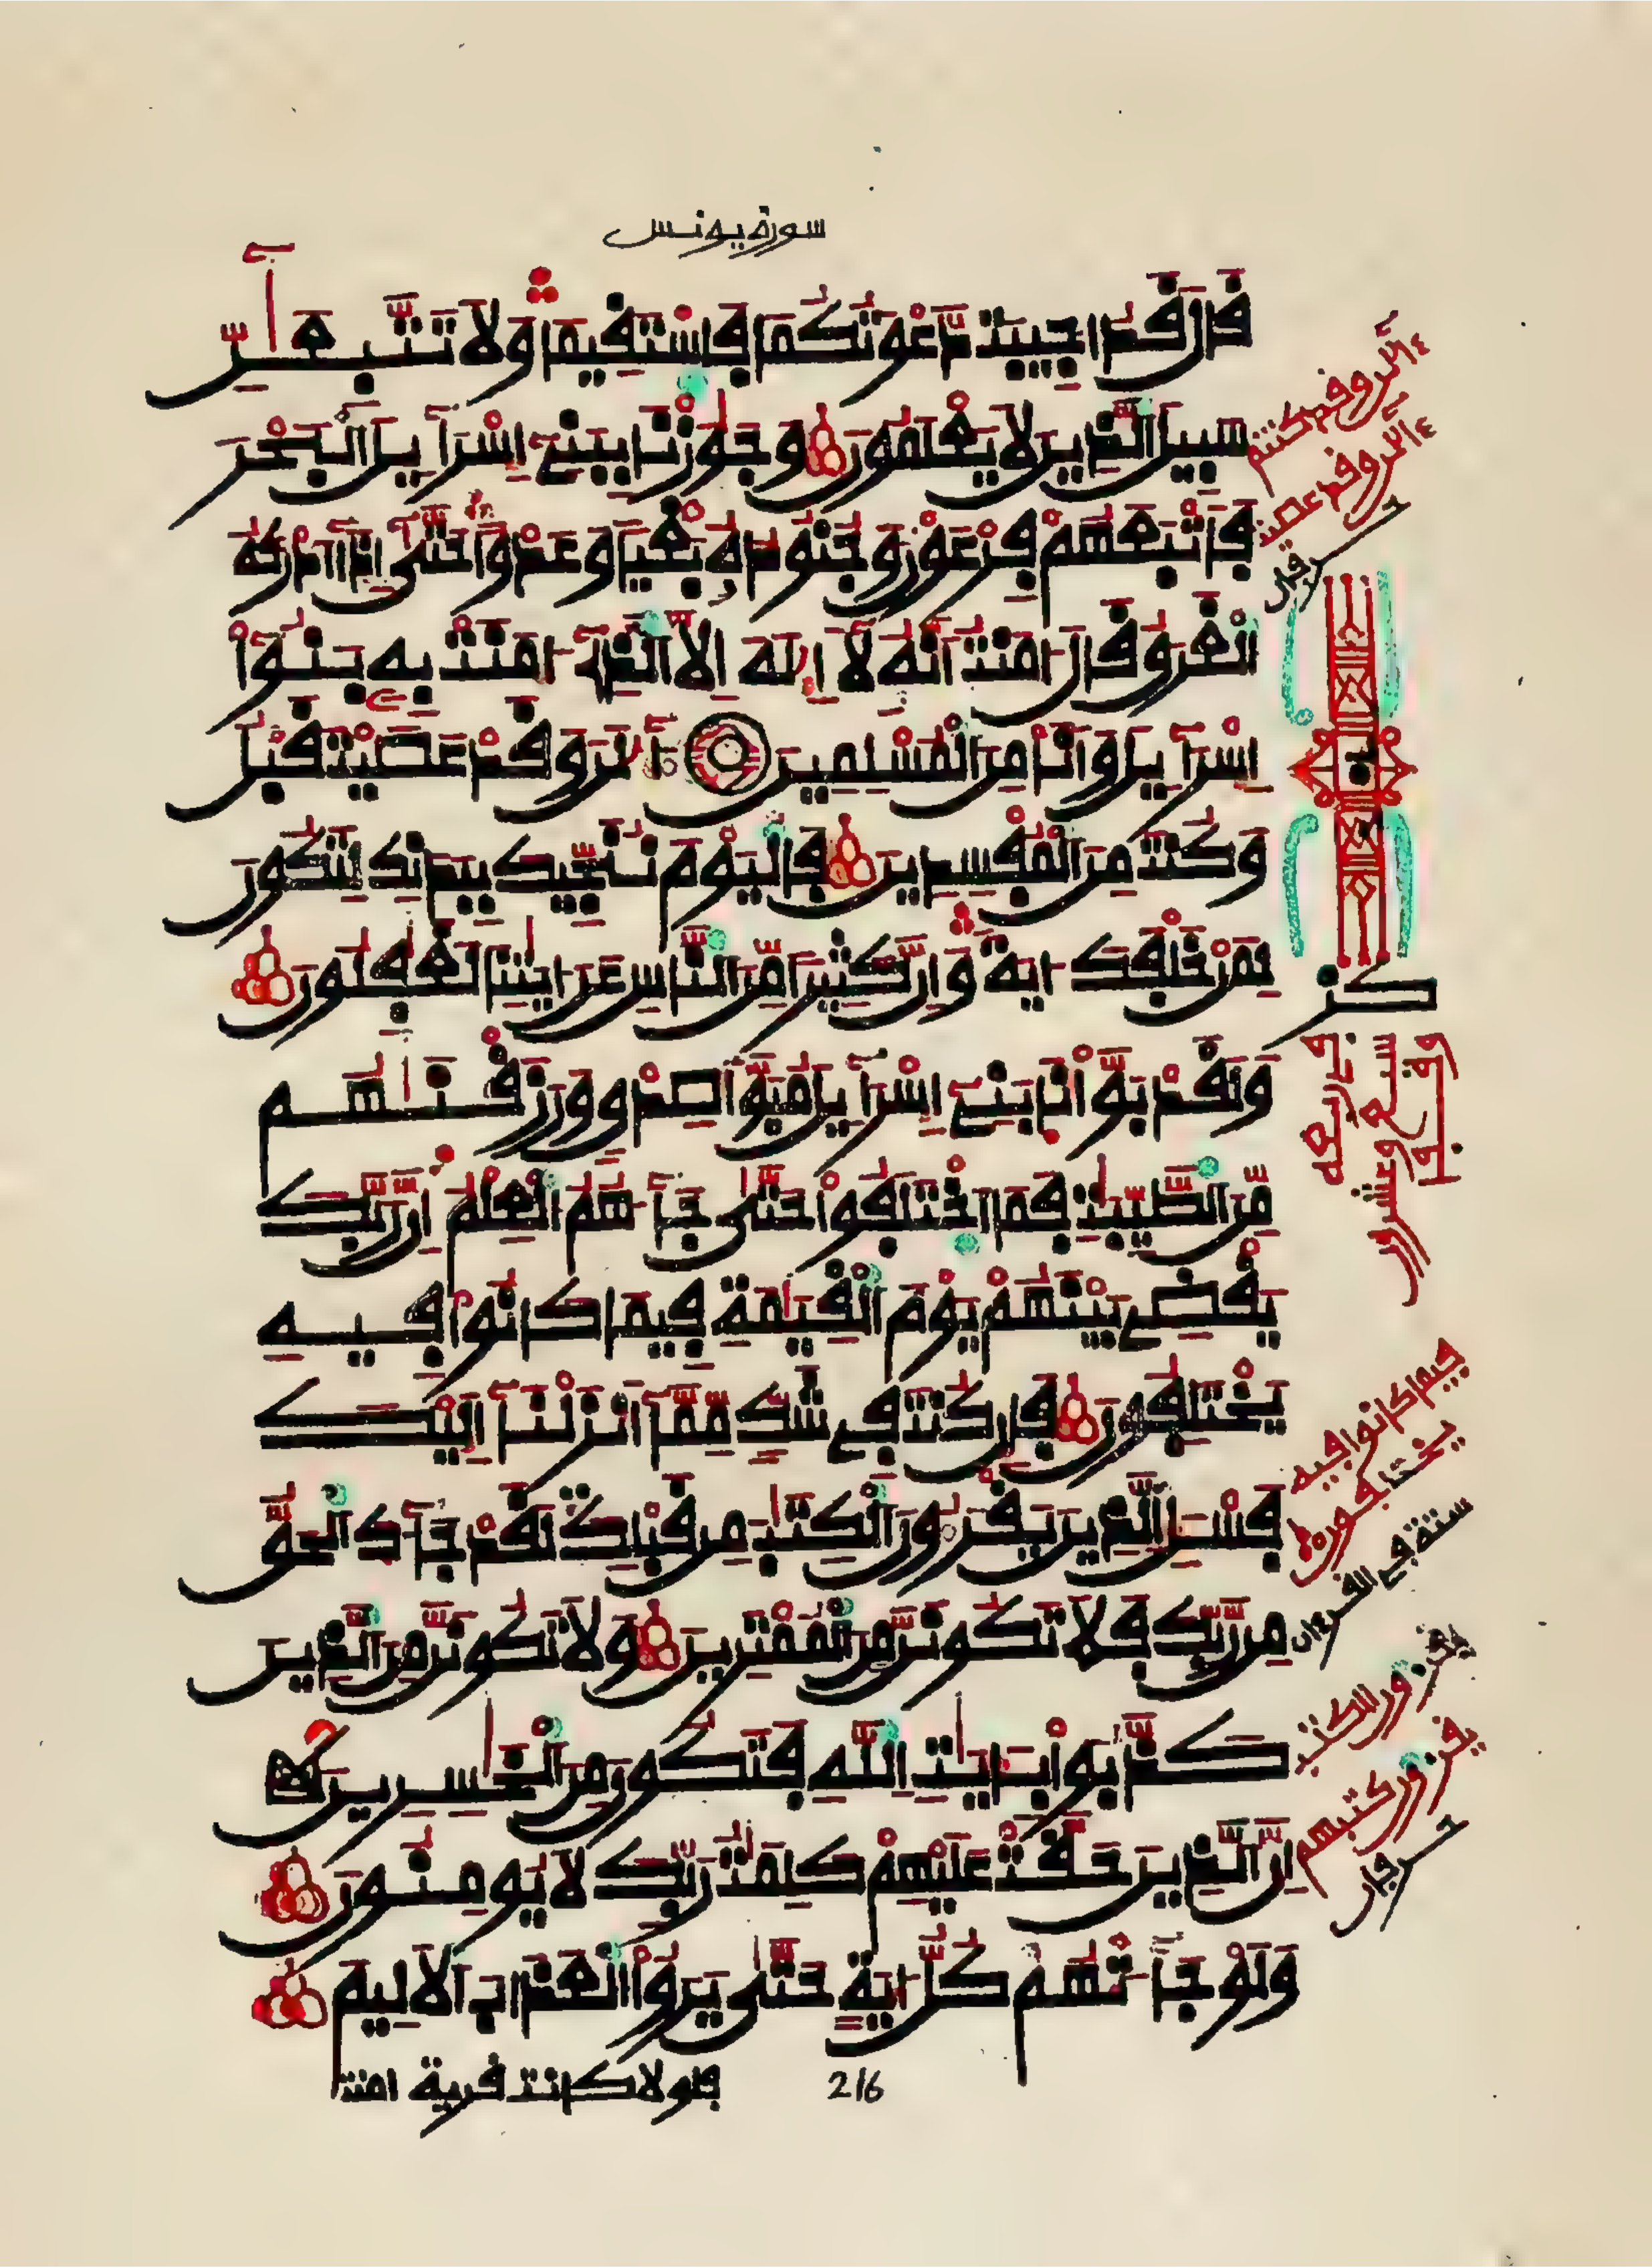 سورة يونس
قال قد اجيبت دعوتكما فاستقيما ولا تتبعان
سبيل الذين لا يعلمون وجوزنا ببنے إسراءيل البحر
فأتبعهم فرعون وجنوده بغيا وعدوا حتى إذا أدركه
الغرق قال ءامنت أنه لا إله إلا الذے ءامنت به بنوا
إسراءيل وأنا من المسلمين ءالن وقد عصيت قبل
وكنت من المفسدين فاليوم ننجيك ببدنك لتكون
لمن خلفك ءاية وإن كثيرا من الناس عن ءايتنا لغفلون
ولقد بوأنا بنے إسراءيل مبوأ صدق ورزقنهم
من الطيبت فما اختلفوا حتى جاءهم العلم إن ربك
يقضے بينهم يوم القيمة فيما كانوا فيه
يختلفون فإن كنت فے شك مما أنزلنا إليك
فسئل الذين يقرءون الكتب من قبلك لقد جاءك الحق
من ربك فلا تكونن من الممترين ولا تكونن من الذين
كذبوا بءايت الله فتكون من الخسرين
إن الذين حقت عليهم كلمت ربك لا يومنون
ولو جاءتهم كل ءاية حتى يروا العذاب الاليم
فلولا كانت قرية امنت
216
ءالن وقد كنتم
ءالن وقد عصيت
فيما كانوا فيه
يختلفون
ستة فے القرءان
يقرءون الكتب
يقرءون كتبهم